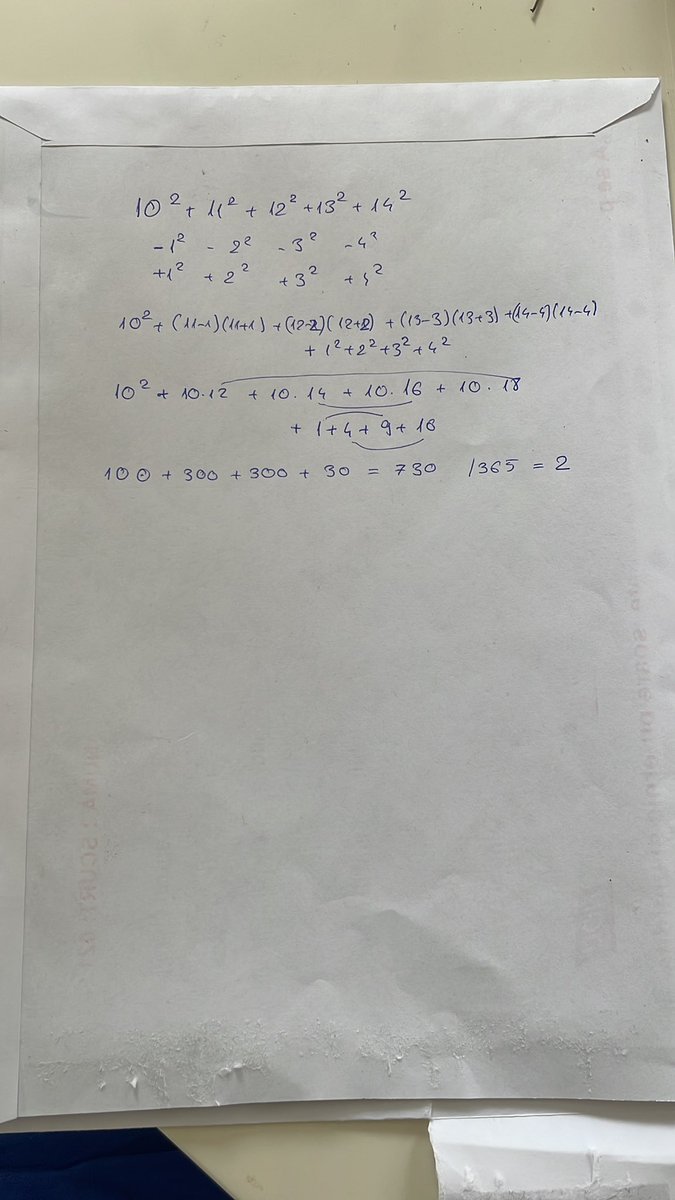 10² + 11² + 12² + 13² + 14²
-1² - 2² - 3² - 4²
+1² + 2² + 3² + 4²
10² + (11-1)(11+1) + (12-2)(12+2) + (13-3)(13+3) + (14-4)(14-4)
+ 1² + 2² + 3² + 4²
10² + 10.12 + 10.14 + 10.16 + 10.18
+ 1 + 4 + 9 + 16
100 + 300 + 300 + 30 = 730 /365 = 2